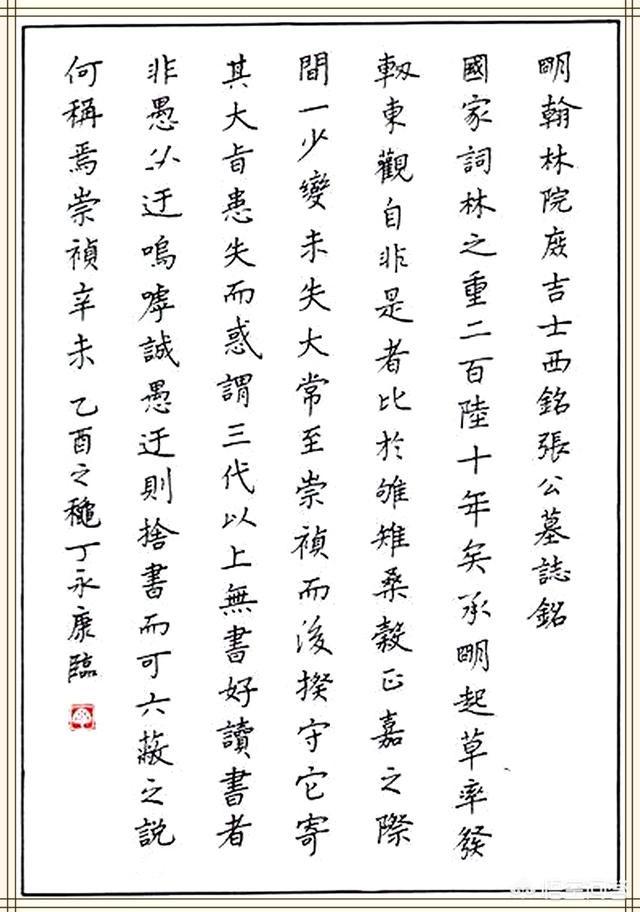 眀翰林院庶吉士西銘張公墓誌銘
國家詞林之重二百陸十年矣承眀起草率發
軔東觀自非是者比於雊雉桑穀正嘉之際
間一少變未失大常至崇禎而後揆守它寄
其大旨患失而惑謂三代以上無書好讀書者
非愚必迂嗚嘑誠愚迂則捨書而可六蔽之説
何稱焉崇禎辛未 乙酉之穐丁永康臨